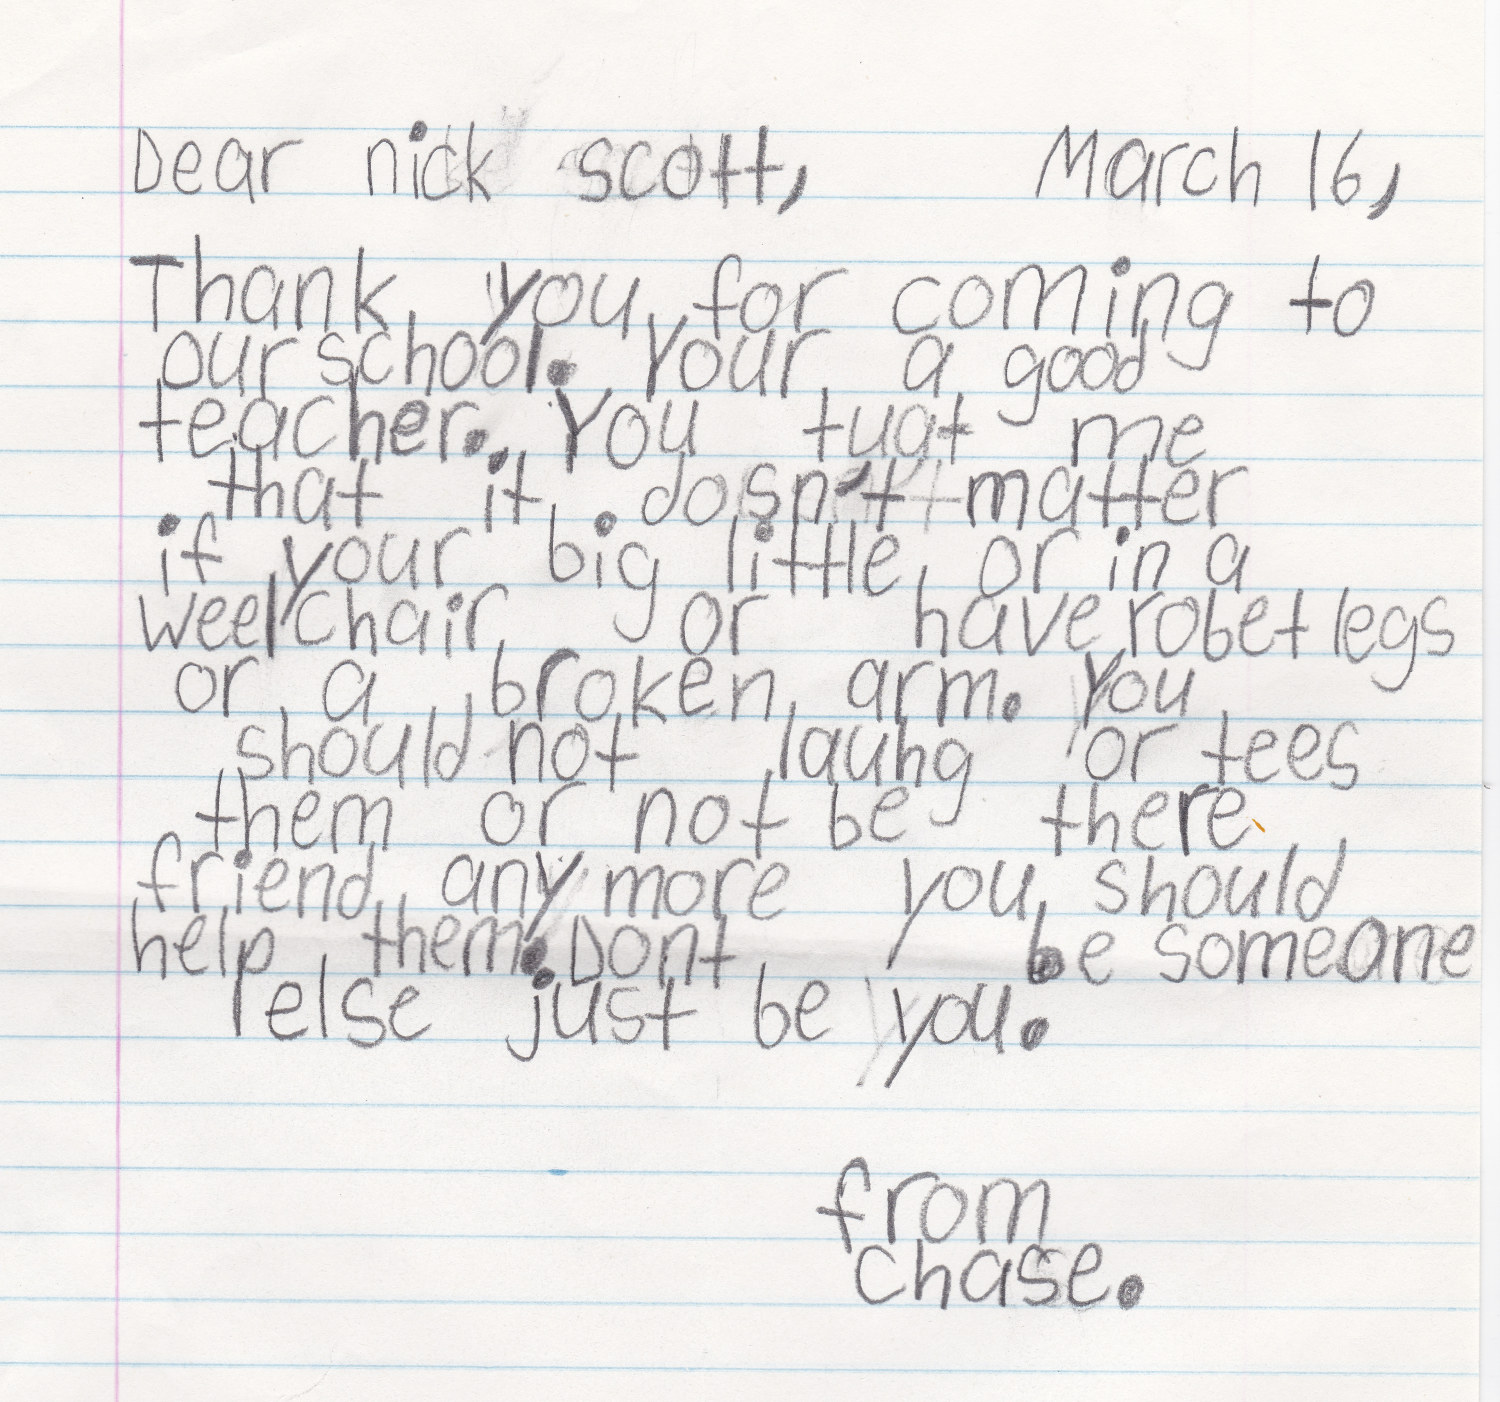 Dear nick scott, March 16,
Thank you for coming to
our school. Your a good
teacher. You tugt me
that it dosn't matter
if your big little or in a
weelchair or have robet legs
or a broken arm. You
should not lauhg or tees
them or not be there
friend any more you should
help them. Dont be someone
else just be you.
from
chase.